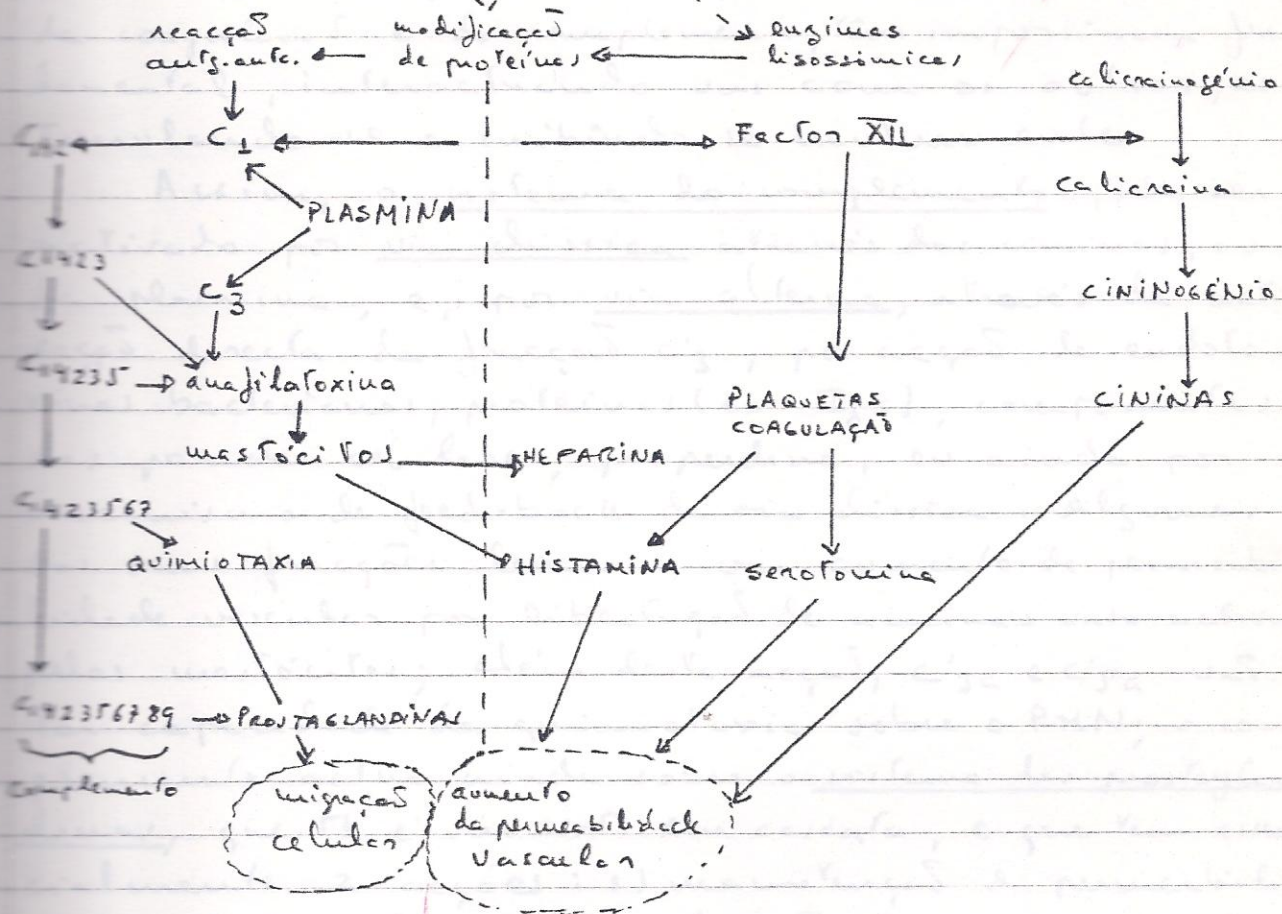 reacção
antg.antc.
modificação
de proteínas
enzimas
lisossómicas
calicrainogénio
C142
C1
Factor XII
calicraina
PLASMINA
C1423
C3
CININOGÉNIO
C14235
anafilatoxina
PLAQUETAS
COAGULAÇÃO
CININAS
mastócitos
HEPARINA
C1423567
QUIMIOTAXIA
HISTAMINA
serotonina
C142356789
PROSTAGLANDINAS
complemento
migração
celular
aumento
da permeabilidade
vascular